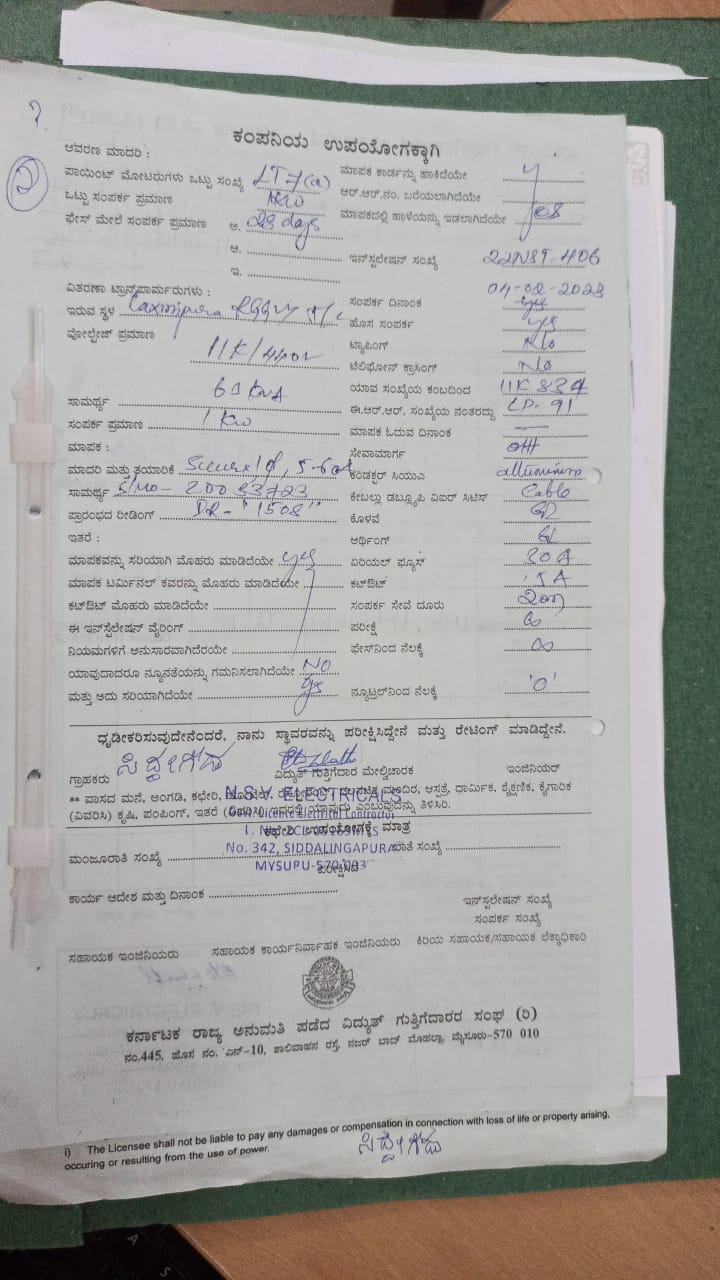 ಕಂಪನಿಯ ಉಪಯೋಗಕ್ಕಾಗಿ
ಆವರಣ ಮಾದರಿ :
ಪಾಯಿಂಟ್ ಮೋಟರುಗಳು ಒಟ್ಟು ಸಂಖ್ಯೆ LT7(a) ಮಾಪಕ ಕಾರ್ಡನ್ನು ಹಾಕಿದೆಯೇ
ಒಟ್ಟು ಸಂಪರ್ಕ ಪ್ರಮಾಣ 1KW ಆರ್.ಆರ್.ನಂ. ಬರೆಯಲಾಗಿದೆಯೇ
ಫೇಸ್ ಮೇಲೆ ಸಂಪರ್ಕ ಪ್ರಮಾಣ ಅ. 28 days ಮಾಪಕದಲ್ಲಿ ಹಾಳೆಯನ್ನು ಇಡಲಾಗಿದೆಯೇ
ಆ. ಇನ್‌ಸ್ಟಲೇಷನ್ ಸಂಖ್ಯೆ 22NST-406
ಇ.
ವಿತರಣಾ ಟ್ರಾನ್ಸ್‌ಫಾರ್ಮರುಗಳು :
ಇರುವ ಸ್ಥಳ Laxmipura RGGVY T/c ಸಂಪರ್ಕ ದಿನಾಂಕ 04-02-2023
ವೋಲ್ಟೇಜ್ ಪ್ರಮಾಣ 11K/440V ಹೊಸ ಸಂಪರ್ಕ yes
ಟ್ಯಾಪಿಂಗ್ No
ಟೆಲಿಫೋನ್ ಕ್ರಾಸಿಂಗ್ No
ಸಾಮರ್ಥ್ಯ 63 KVA ಯಾವ ಸಂಖ್ಯೆಯ ಕಂಬದಿಂದ
ಸಂಪರ್ಕ ಪ್ರಮಾಣ 1 KW ಈ.ಆರ್.ಆರ್. ಸಂಖ್ಯೆಯ ನಂತರದ್ದು LP-91
ಮಾಪಕ : ಮಾಪಕ ಓದುವ ದಿನಾಂಕ
ಮಾದರಿ ಮತ್ತು ತಯಾರಿಕೆ Secure 1ϕ, 5-60A ಸೇವಾಮಾರ್ಗ OH
ಸಾಮರ್ಥ್ಯ S/no- 20083723 ಕಂಡಕ್ಟರ್ ಸಿಯುಎ
ಪ್ರಾರಂಭದ ರೀಡಿಂಗ್ IR- "1508" ಕೇಬಲ್ಲು ಡಬ್ಲ್ಯೂಪಿ ಎಐರ್ ಸಿಟಿಸ್ Cable
ಕೊಳವೆ
ಇತರೆ : ಆರ್ಥಿಂಗ್
ಮಾಪಕವನ್ನು ಸರಿಯಾಗಿ ಮೊಹರು ಮಾಡಿದೆಯೇ yes ಏರಿಯಲ್ ಫ್ಯೂಸ್ 20A
ಮಾಪಕ ಟರ್ಮಿನಲ್ ಕವರನ್ನು ಮೊಹರು ಮಾಡಿದೆಯೇ ಕಟ್‌ಔಟ್ 15A
ಕಟ್‌ಔಟ್ ಮೊಹರು ಮಾಡಿದೆಯೇ ಸಂಪರ್ಕ ಸೇವೆ ದೂರು
ಈ ಇನ್‌ಸ್ಟೆಲೇಷನ್ ವೈರಿಂಗ್ ಪರೀಕ್ಷೆ ∞
ನಿಯಮಗಳಿಗೆ ಅನುಸಾರವಾಗಿದೆರಯೇ ಫೇಸ್‌ನಿಂದ ನೆಲಕ್ಕೆ ∞
ಯಾವುದಾದರೂ ನ್ಯೂನತೆಯನ್ನು ಗಮನಿಸಲಾಗಿದೆಯೇ NO
ಮತ್ತು ಅದು ಸರಿಯಾಗಿದೆಯೇ yes ನ್ಯೂಟ್ರಲ್‌ನಿಂದ ನೆಲಕ್ಕೆ 'O'
ಧೃಡೀಕರಿಸುವುದೇನೆಂದರೆ, ನಾನು ಸ್ಥಾವರವನ್ನು ಪರೀಕ್ಷಿಸಿದ್ದೇನೆ ಮತ್ತು ರೇಟಿಂಗ್ ಮಾಡಿದ್ದೇನೆ.
ಗ್ರಾಹಕರು ವಿದ್ಯುತ್ ಗುತ್ತಿಗೆದಾರ ಮೇಲ್ವಿಚಾರಕ ಇಂಜಿನಿಯರ್
** ವಾಸದ ಮನೆ, ಅಂಗಡಿ, ಕಛೇರಿ, ಮಂದಿರ, ಆಸ್ಪತ್ರೆ, ಧಾರ್ಮಿಕ, ಶೈಕ್ಷಣಿಕ, ಕೈಗಾರಿಕ
N.S.V. ELECTRICALS
(ವಿವರಿಸಿ) ಕೃಷಿ, ಪಂಪಿಂಗ್, ಇತರೆ ಯಾವುದು ಎಂಬುವುದನ್ನು ತಿಳಿಸಿರಿ.
ಕಛೇರಿ ಉಪಯೋಗಕ್ಕೆ ಮಾತ್ರ
No. 342, SIDDALINGAPURA
ಮಂಜೂರಾತಿ ಸಂಖ್ಯೆ ಖಾತೆ ಸಂಖ್ಯೆ
MYSUPU-570 003
ಪರೀಕ್ಷಿಸಿದೆ
ಕಾರ್ಯ ಆದೇಶ ಮತ್ತು ದಿನಾಂಕ
ಇನ್‌ಸ್ಟಲೇಷನ್ ಸಂಖ್ಯೆ
ಸಂಪರ್ಕ ಸಂಖ್ಯೆ
ಸಹಾಯಕ ಇಂಜಿನಿಯರು ಸಹಾಯಕ ಕಾರ್ಯನಿರ್ವಾಹಕ ಇಂಜಿನಿಯರು ಕಿರಿಯ ಸಹಾಯಕ/ಸಹಾಯಕ ಲೆಕ್ಕಾಧಿಕಾರಿ
ಕರ್ನಾಟಕ ರಾಜ್ಯ ಅನುಮತಿ ಪಡೆದ ವಿದ್ಯುತ್ ಗುತ್ತಿಗೆದಾರರ ಸಂಘ (ರಿ)
ನಂ.445, ಹೊಸ ನಂ. ಎನ್-10, ಶಾಲಿವಾಹನ ರಸ್ತೆ, ನಜರ್ ಬಾದ್ ಮೊಹಲ್ಲಾ, ಮೈಸೂರು-570 010
i) The Licensee shall not be liable to pay any damages or compensation in connection with loss of life or property arising,
occuring or resulting from the use of power.